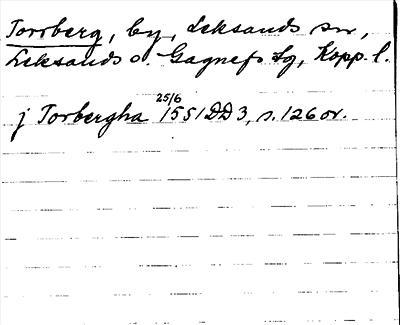 Torrberg, by, Leksands sn,
Leksands o. Gagnefs tg, Kopp. l.
j Torbergha 25/6 1551 DD 3, s. 126 ov.